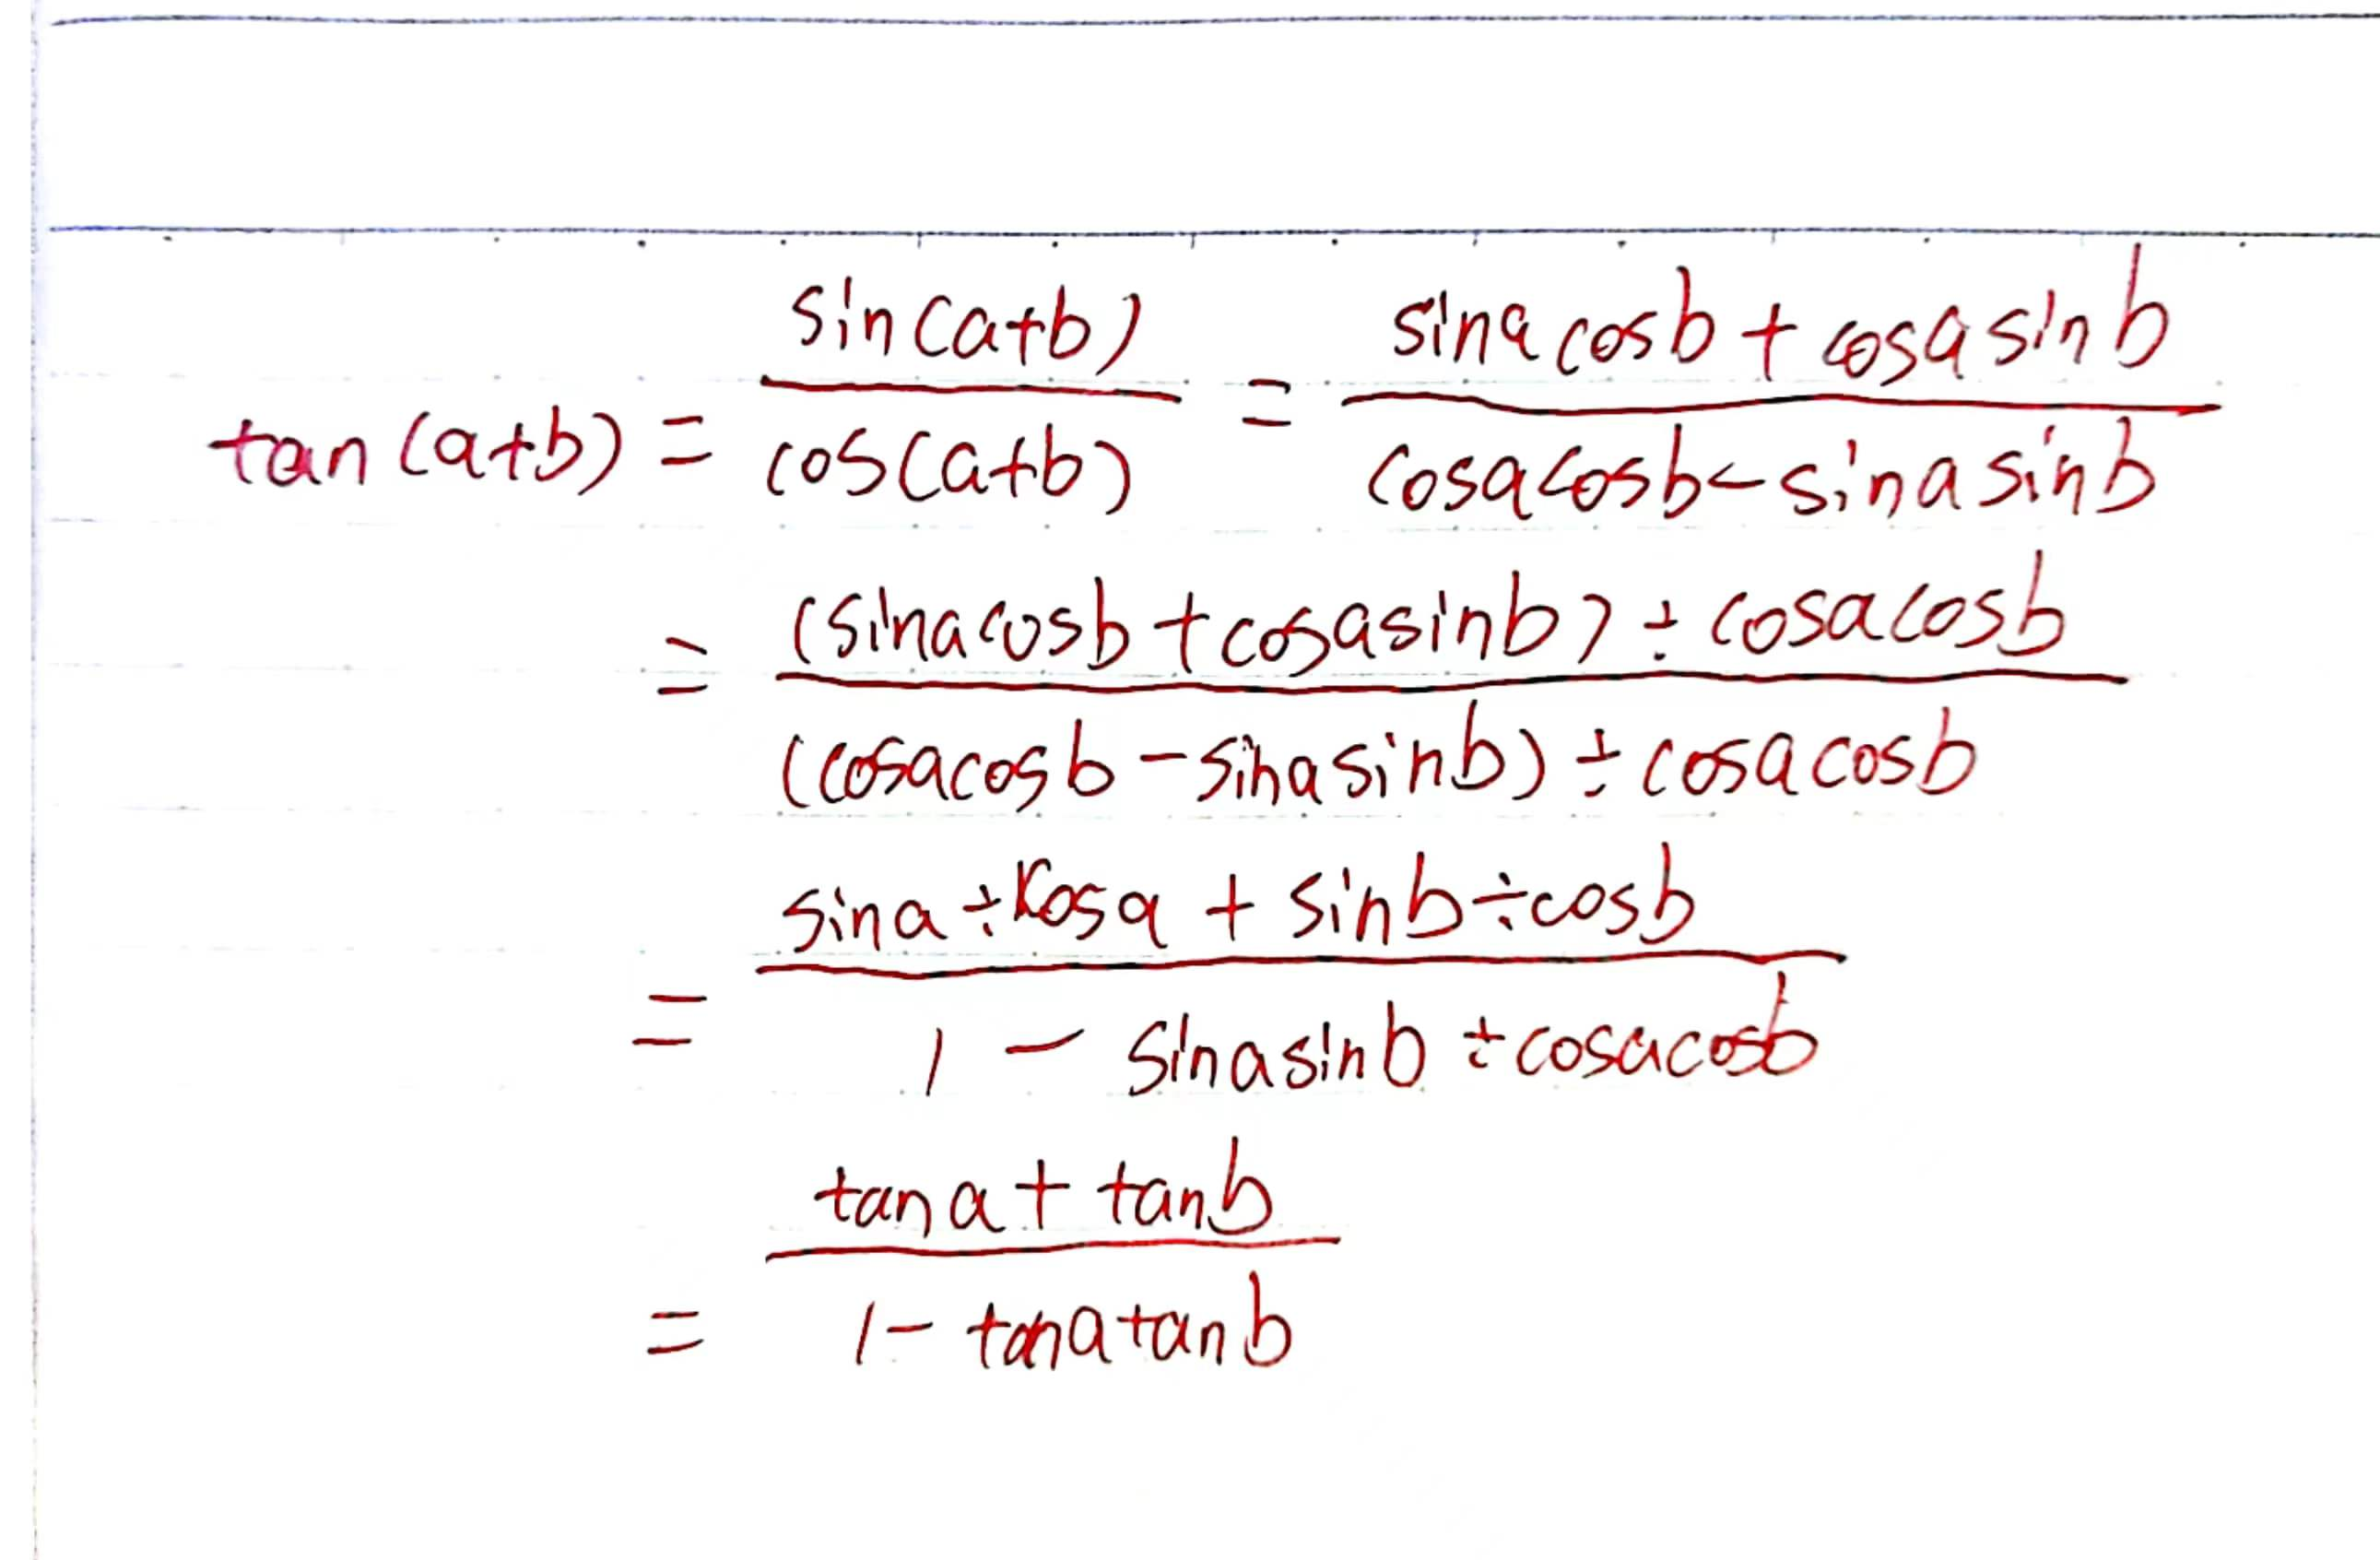 tan(a+b) = sin(a+b) / cos(a+b) = (sina cosb + cosa sinb) / (cosa cosb - sina sinb)
= (sina cosb + cosa sinb) ÷ cosa cosb / (cosa cosb - sina sinb) ÷ cosa cosb
= (sina ÷ cosa + sinb ÷ cosb) / (1 - sina sinb ÷ cosa cosb)
= (tana + tanb) / (1 - tana tanb)